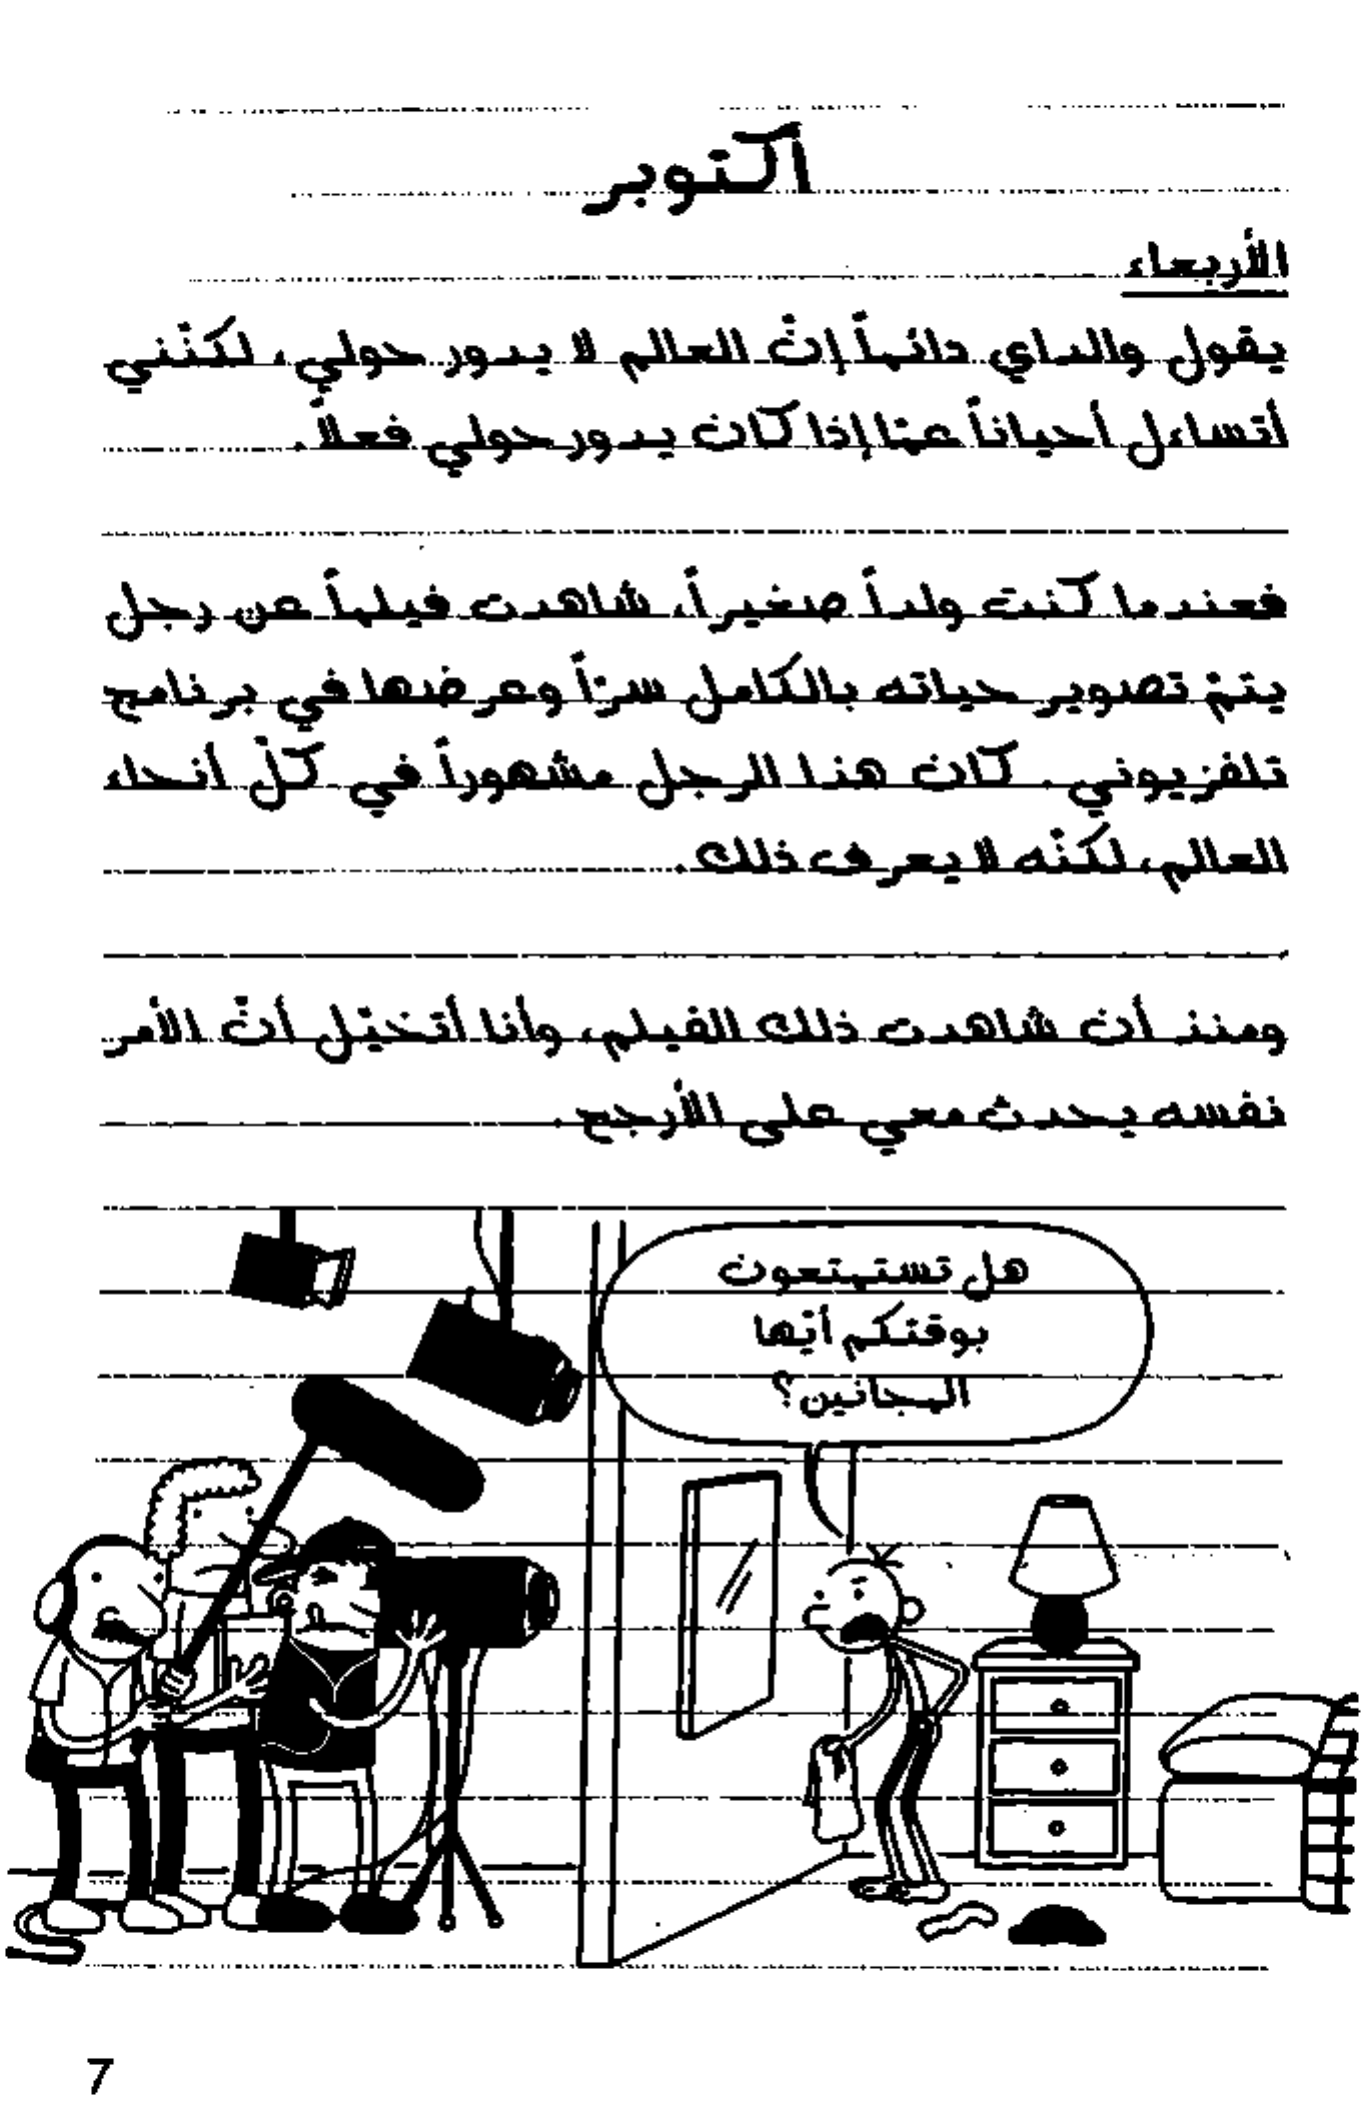 أكتوبر
الأربعاء
يقول والداي دائماً إنّ العالم لا يدور حولي، لكنّني
أتساءل أحياناً عمّا إذا كان يدور حولي فعلاً.
فعندما كنت ولداً صغيراً، شاهدت فيلماً عن رجل
يتمّ تصوير حياته بالكامل سرّاً وعرضها في برنامج
تلفزيوني. كان هذا الرجل مشهوراً في كلّ أنحاء
العالم، لكنّه لا يعرف ذلك.
ومنذ أن شاهدت ذلك الفيلم، وأنا أتخيّل أنّ الأمر
نفسه يحدث معي على الأرجح.
هل تستمتعون
بوقتكم أيّها
المجانين؟
7